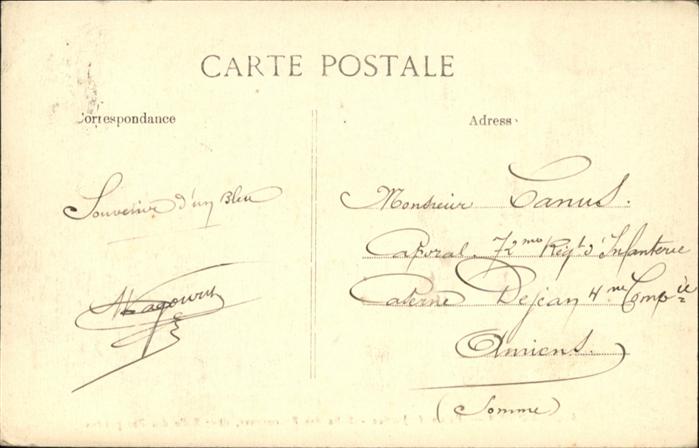 CARTE POSTALE
Correspondance
Adresse
Souvenir d'un Bleu
Monsieur Canus.
Caporal 72me Régt d'Infanterie
Caserne Dejean 4me Compie
Amiens.
(Somme)